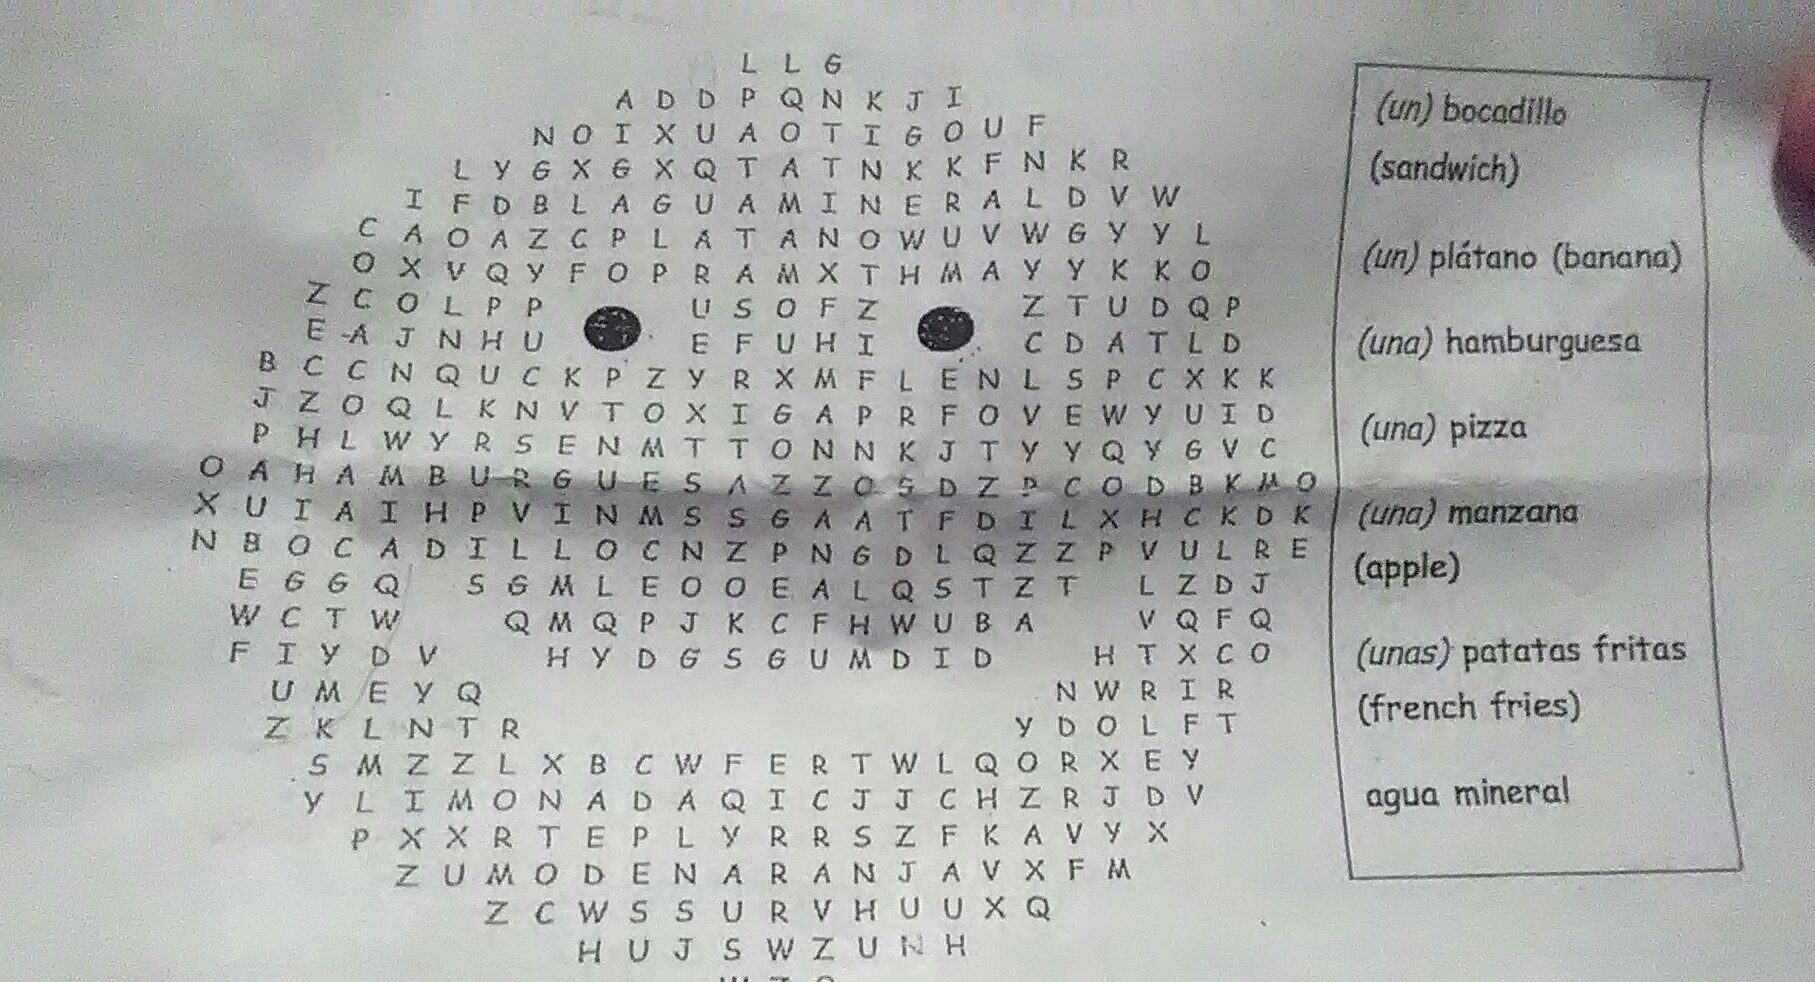 L L G
A D D P Q N K J I
N O I X U A O T I G O U F
L Y G X G X Q T A T N K K F N K R
I F D B L A G U A M I N E R A L D V W
C A O A Z C P L A T A N O W U V W G Y Y L
O X V Q Y F O P R A M X T H M A Y Y K K O
Z C O L P P U S O F Z Z T U D Q P
E A J N H U E F U H I C D A T L D
B C C N Q U C K P Z Y R X M F L E N L S P C X K K
J Z O Q L K N V T O X I G A P R F O V E W Y U I D
P H L W Y R S E N M T T O N N K J T Y Y Q Y G V C
O A H A M B U R G U E S A Z Z O S D Z P C O D B K M O
X U I A I H P V I N M S S G A A T F D I L X H C K D K
N B O C A D I L L O C N Z P N G D L Q Z Z P V U L R E
E G G Q S G M L E O O E A L Q S T Z T L Z D J
W C T W Q M Q P J K C F H W U B A V Q F Q
F I Y D V H Y D G S G U M D I D H T X C O
U M E Y Q N W R I R
Z K L N T R Y D O L F T
S M Z Z L X B C W F E R T W L Q O R X E Y
Y L I M O N A D A Q I C J J C H Z R J D V
P X X R T E P L Y R R S Z F K A V Y X
Z U M O D E N A R A N J A V X F M
Z C W S S U R V H U U X Q
H U J S W Z U N H
(un) bocadillo
(sandwich)
(un) plátano (banana)
(una) hamburguesa
(una) pizza
(una) manzana
(apple)
(unas) patatas fritas
(french fries)
agua mineral